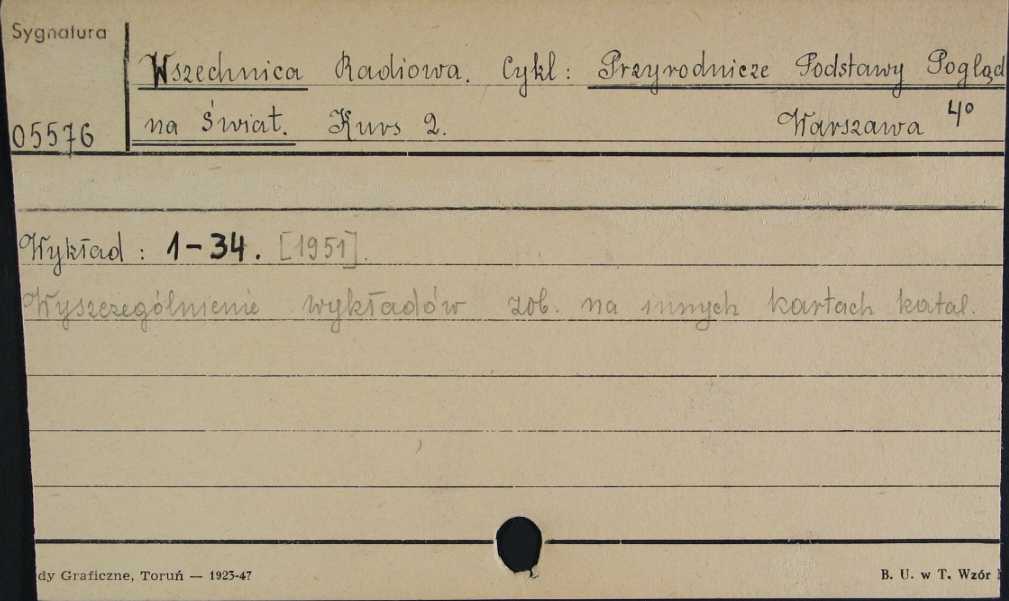 Sygnatura
Wszechnica Radiowa. Cykl: Przyrodnicze Podstawy Pogląd
05576 na Świat. Kurs 2. Warszawa 4°
Wykład: 1-34. [1951].
Wyszczególnienie wykładów zob. na innych kartach katal.
dy Graficzne, Toruń — 1923-47 B. U. w T. Wzór